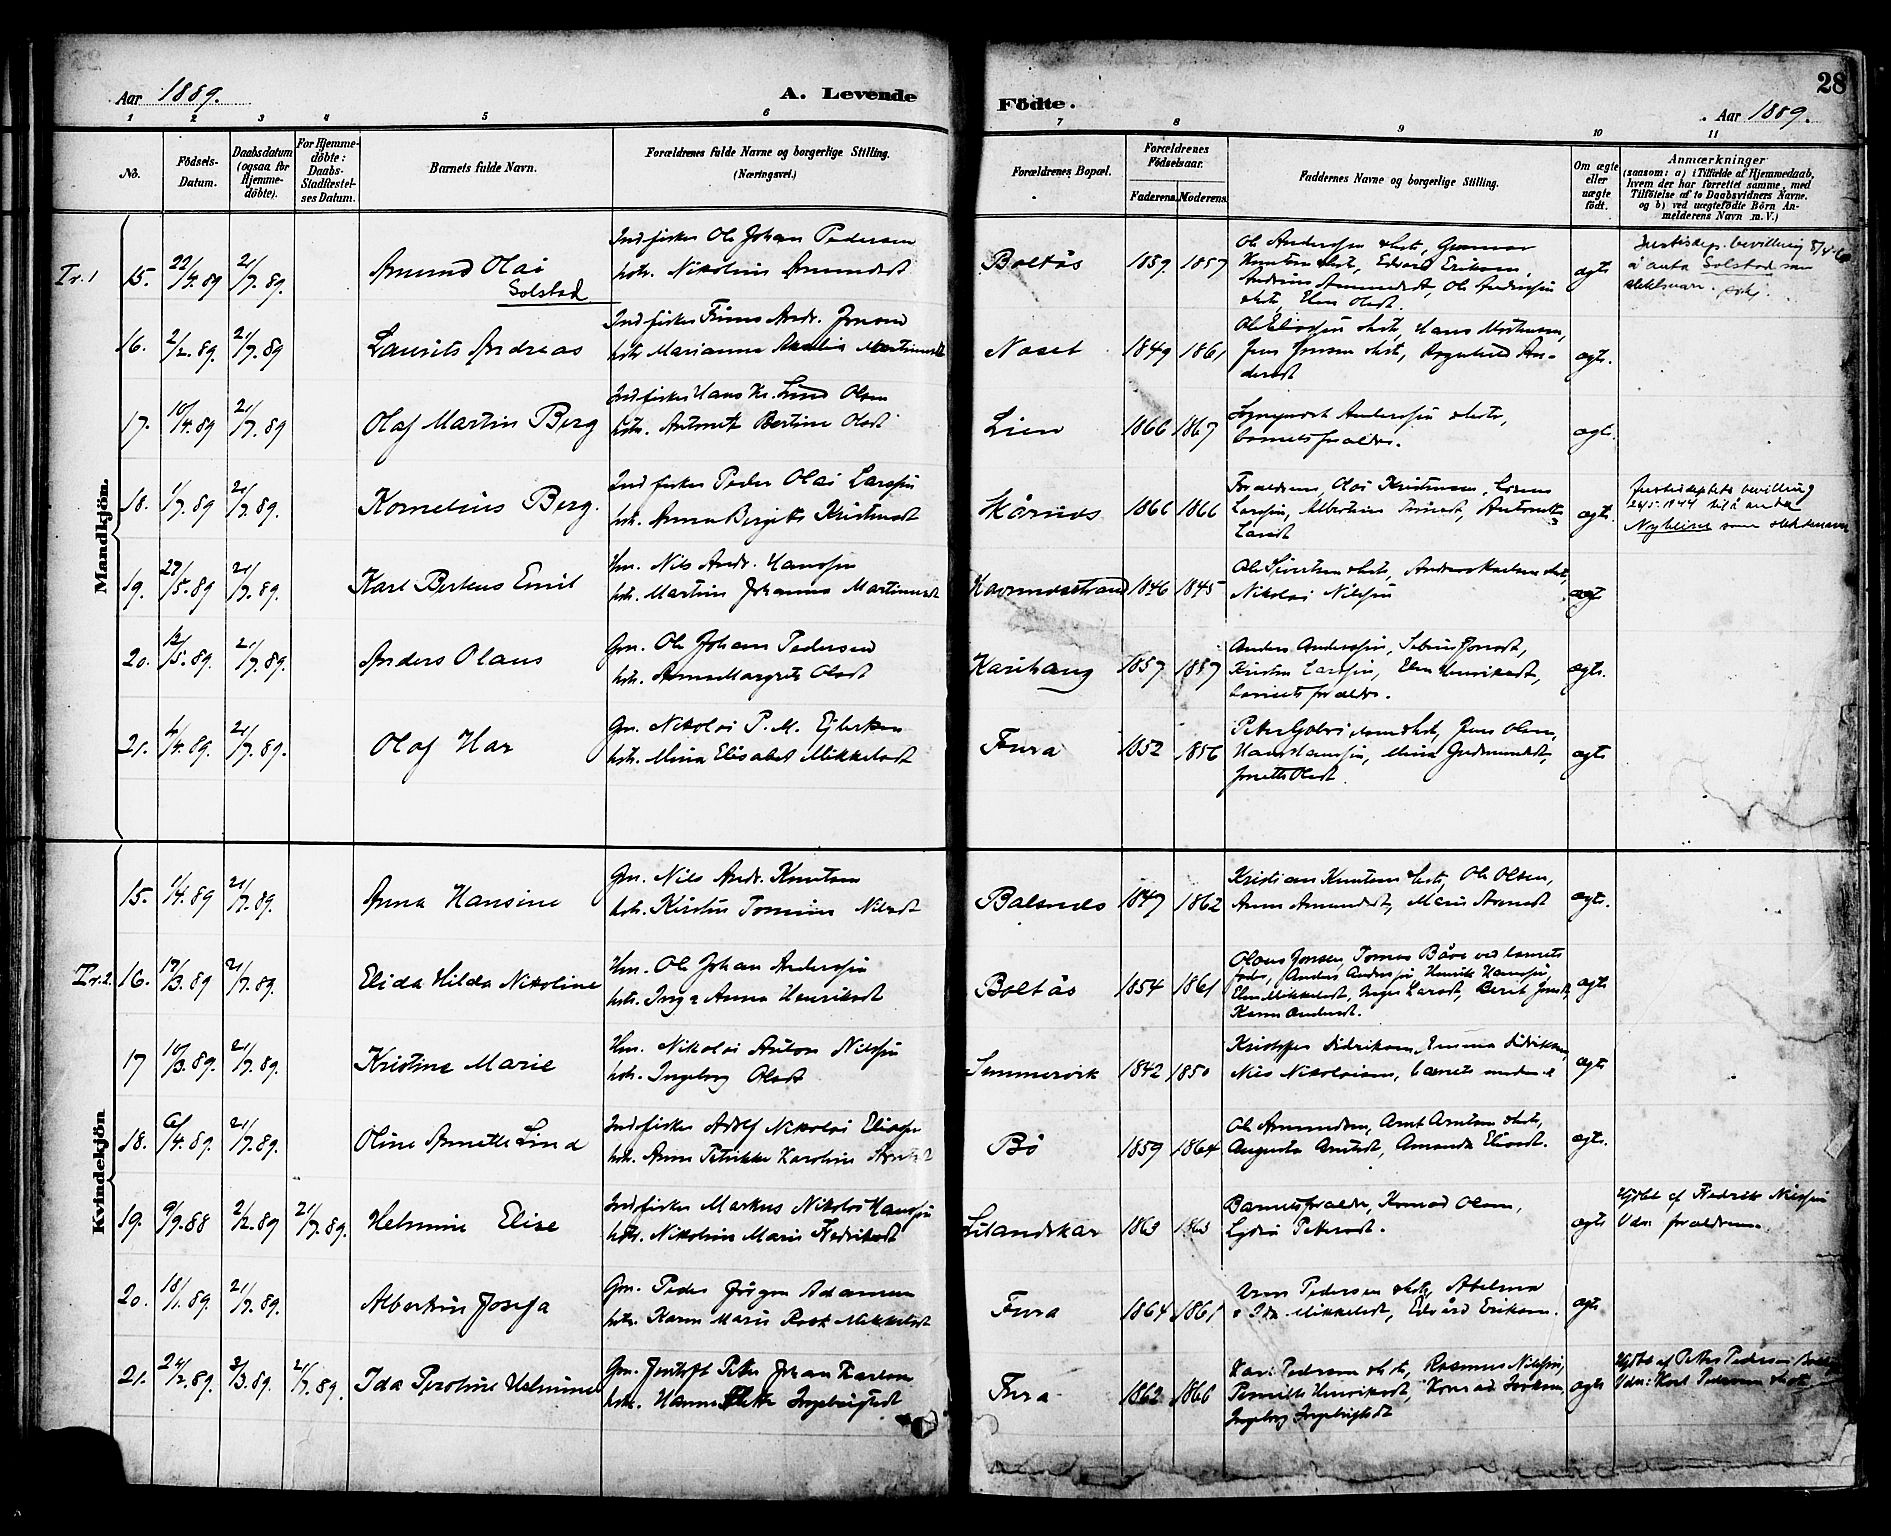 Aar 1889.
A. Levende
Födte.
28
Aar 1889.
1 2 3 4 5 6 7 8 9 10 11
No.
Födsels-Datum.
Daabsdatum (ogsaa for Hjemme-döbte).
For Hjemme-döbte: Daabs-Stadfæstel-ses Datum.
Barnets fulde Navn.
Forældrenes fulde Navne og borgerlige Stilling.
(Næringsvei.)
Forældrenes Bopæl.
Forældrenes Födselsaar.
Faderens. Moderens.
Faddernes Navne og borgerlige Stilling.
Om ægte eller uægte födt.
Anmærkninger
(saasom: a) i Tilfælde af Hjemmedaab,
hvem der har forrettet samme, med
Tilföielse af to Daabsvidners Navne.
og b) ved uægtefödte Börn An-
melderens Navn m. V.)
Mandkjön.
Tr. 1
15. 22/4 89 21/7 89. Amund Olai
Solstad
Indfisker Ole Johan Pedersen
hstr. Nikoline Amundsdt
Boltås 1859 1857
Ole Anderssen Hst, Gunnar
Knutsen Hst, Edvard Eriksen,
Amundsdt, Ole Anderssen
Hst, Elen Olsdt.
ægte
bevilling
å anta Solstad som
slektsnavn.
16. 2/2. 89. 21/7. 89 Laurits Andreas
Indfisker Andr. Jensen
hstr. Marianne Martinusdt
Naset 1849 1861
Hans
Jens Jensen Hst, Ragnhild An-
dersdt
ægte.
17. 10/4. 89 21/7. 89 Olaf Martin Berg
Indfisker Hans Kr. Lind Olsen
hstr. Antonette Bertine Olsdt
Lien 1866 1867
Anderssen Hst,
barnets forældre.
ægte.
18. 1/7. 89 21/7. 89. Kornelius Berg.
Indfisker Peder Olai Larssen
hstr. Anna Bergitte Kristensdt
1866 1866
Forældrene, Olai Kristensen,
Larssen, Albertine Antonette
Larsdt
ægte
bevilling
til å anta
Nyheim som slektsnavn
19. 27/5. 89 21/7. 89. Karl Berteus Emil
Hm. Nils Andr. Hanssen
hstr. Martine Johanna Martinusdt
Kavrinsstrand 1846 1845
Ole Sivertsen Hst, Anders Karlsen Hst,
Nikolai Nilssen
ægte
20. 12/5. 89. 21/7. 89. Anders Olaus
Gm. Ole Johan Pedersen
hstr. Anna Margrete Olsdt
Karihaug 1857 1857
Anders Anderssen,
Kristen Larssen, Elen Henriksdt,
barnets forældre.
ægte.
21. 4/4. 89. 21/7. 89. Olaf Har
Gm. Nikolai P. M. Ejlertsen
hstr. Mina Elisabet Mikkelsdt
Fura 1852 1856
Hst, Jens Olsen,
Hans Hanssen, Mina Gudmundsdt,
Jonette Olsdt.
ægte
Kvindekjön
15. 1/4. 89 21/7. 89. Anna Hansine
Gm. Nils Andr. Knutsen
hstr. Kirstine Tomine Nilsdt
Balsnes 1849 1862
Kristian Knutsen Hst, Ole Olsen,
Anne Amundsdt, Marie
ægte.
Tr. 2.
16. 17/3. 89 21/7. 89. Elida Hilda Nikoline
Hm. Ole Johan Anderssen
hstr. Inga Anna Henriksdt
Boltås 1854 1861
Olaus Jonsen, Tomas Båva ved barnets
fader, Anders Anderssen Henrik Hanssen,
Elen Mikkelsdt, Inger Larsdt, Berit
Karen Andersdt.
ægte
17 10/3. 89. 21/7. 89. Kristine Marie
Hm. Nikolai Anton Nilssen
hstr. Ingeborg Olsdt
1842 1850
Kristoffer Didriksen, Emma Didriksen,
Nils Nikolaisen, barnets moder
ægte
18. 6/4. 89. 21/7. 89. Oline Annette Lind
Indfisker Adolf Nikolai Eliassen
hstr. Anne Petrikke Karoline
Bö 1859 1864
Ole Amundsen, Arnt Arntsen Hst,
Augusta Arntsdt, Amanda Eliasdt.
ægte.
19. 9/9. 88 2/2. 89 21/7. 89. Helmine Elise
Indfisker Markus Nikolai Hanssen
hstr. Nikoline Marie Fredriksdt
Lilandskar 1863 1863
Barnets forældre, Konrad Olsen,
Lydia Petersdt.
ægte
Hjdbt af Fredrik Nilssen
Vdn. forældrene.
20. 18/1. 89. 21/7. 89. Albertine Josefa
Gm. Peder Jörgen Adamsen
hstr. Karen Marie Rask Mikkelsdt
Fura 1864 1861
Arne Pedersen Hst, Abelma
o Ida Mikkelsdt, Edvard Eriksen.
ægte
21. 24/2. 89. 3/3. 89. 21/7. 89. Ida Peroline Helmine
Gm. Jentoft Peter Johan Karlsen
hstr. Hanna Ingebrigtsdt
Fura 1862 1866
Pedersen Hst, Rasmus Nilssen,
Pernille Henriksdt, Konrad
Ingeborg Ingebrigtsdt
ægte
Hjdbt af Petter Pedersen
Vdn: Karl Pedersen Hst